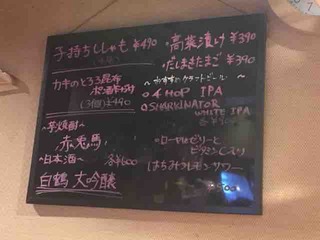 子持ちししゃも ¥490
カキのとろろ昆布
ポン酢
(3個) ¥490
〜芋焼酎〜
赤兎馬
〜日本酒〜 各¥600
白鶴 大吟醸
・高菜漬け ¥390
・だしまきたまご ¥390
〜おすすめクラフトビール〜
4HOP IPA
SHARKINATOR
WHITE IPA
ローヤルゼリーと
ビタミンC入り
はちみつレモンサワー